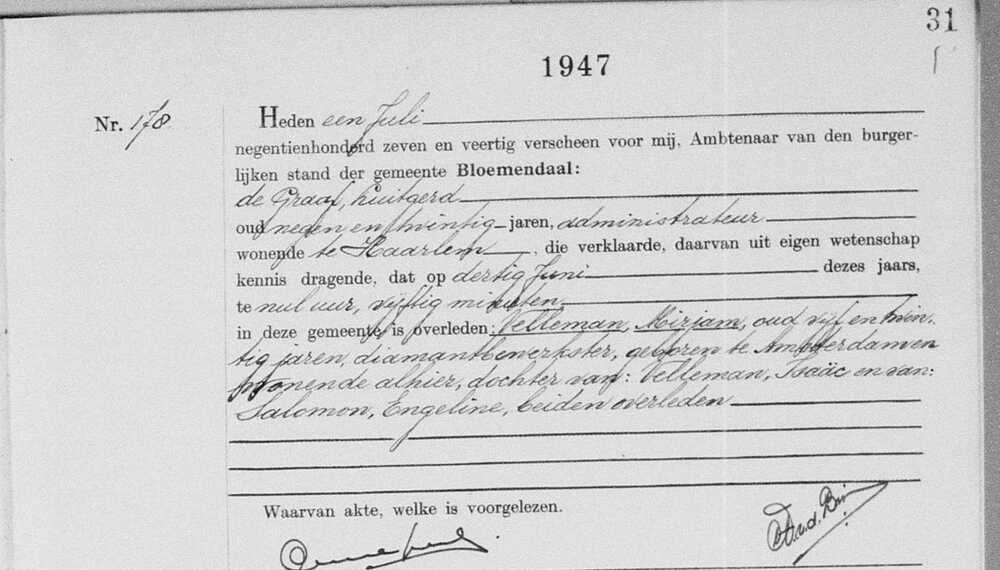 31
1947
Nr. 178.
Heden een Juli
negentienhonderd zeven en veertig verscheen voor mij, Ambtenaar van den burger-
lijken stand der gemeente Bloemendaal:
de Graaf, Luitgerd
oud negen en twintig jaren, administrateur
wonende te Haarlem, die verklaarde, daarvan uit eigen wetenschap
kennis dragende, dat op dertig Juni dezes jaars,
te nul uur, vijftig minuten
in deze gemeente is overleden: Velleman, Mirjam, oud vijf en twin-
tig jaren, diamantbewerkster, geboren te Amsterdam en
wonende alhier, dochter van: Velleman, Isaäc en van:
Salomon, Engeline, beiden overleden
Waarvan akte, welke is voorgelezen.